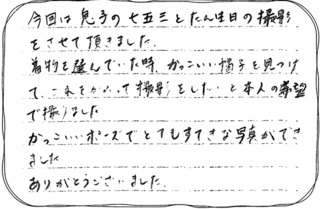 今回は息子の七五三とたん生日の撮影
をさせて頂きました。
着物を選んでいた時、かっこいい帽子を見つけ
て、これをかぶって撮影をしたいと本人の希望
で撮りました
かっこいいポーズでとてもすてきな写真ができ
ました
ありがとうございました。